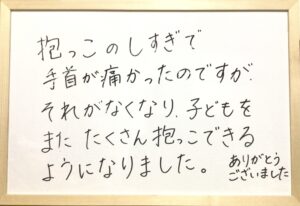 抱っこのしすぎで
手首が痛かったのですが、
それがなくなり、子どもを
また たくさん抱っこできる
ようになりました。
ありがとう
ございました